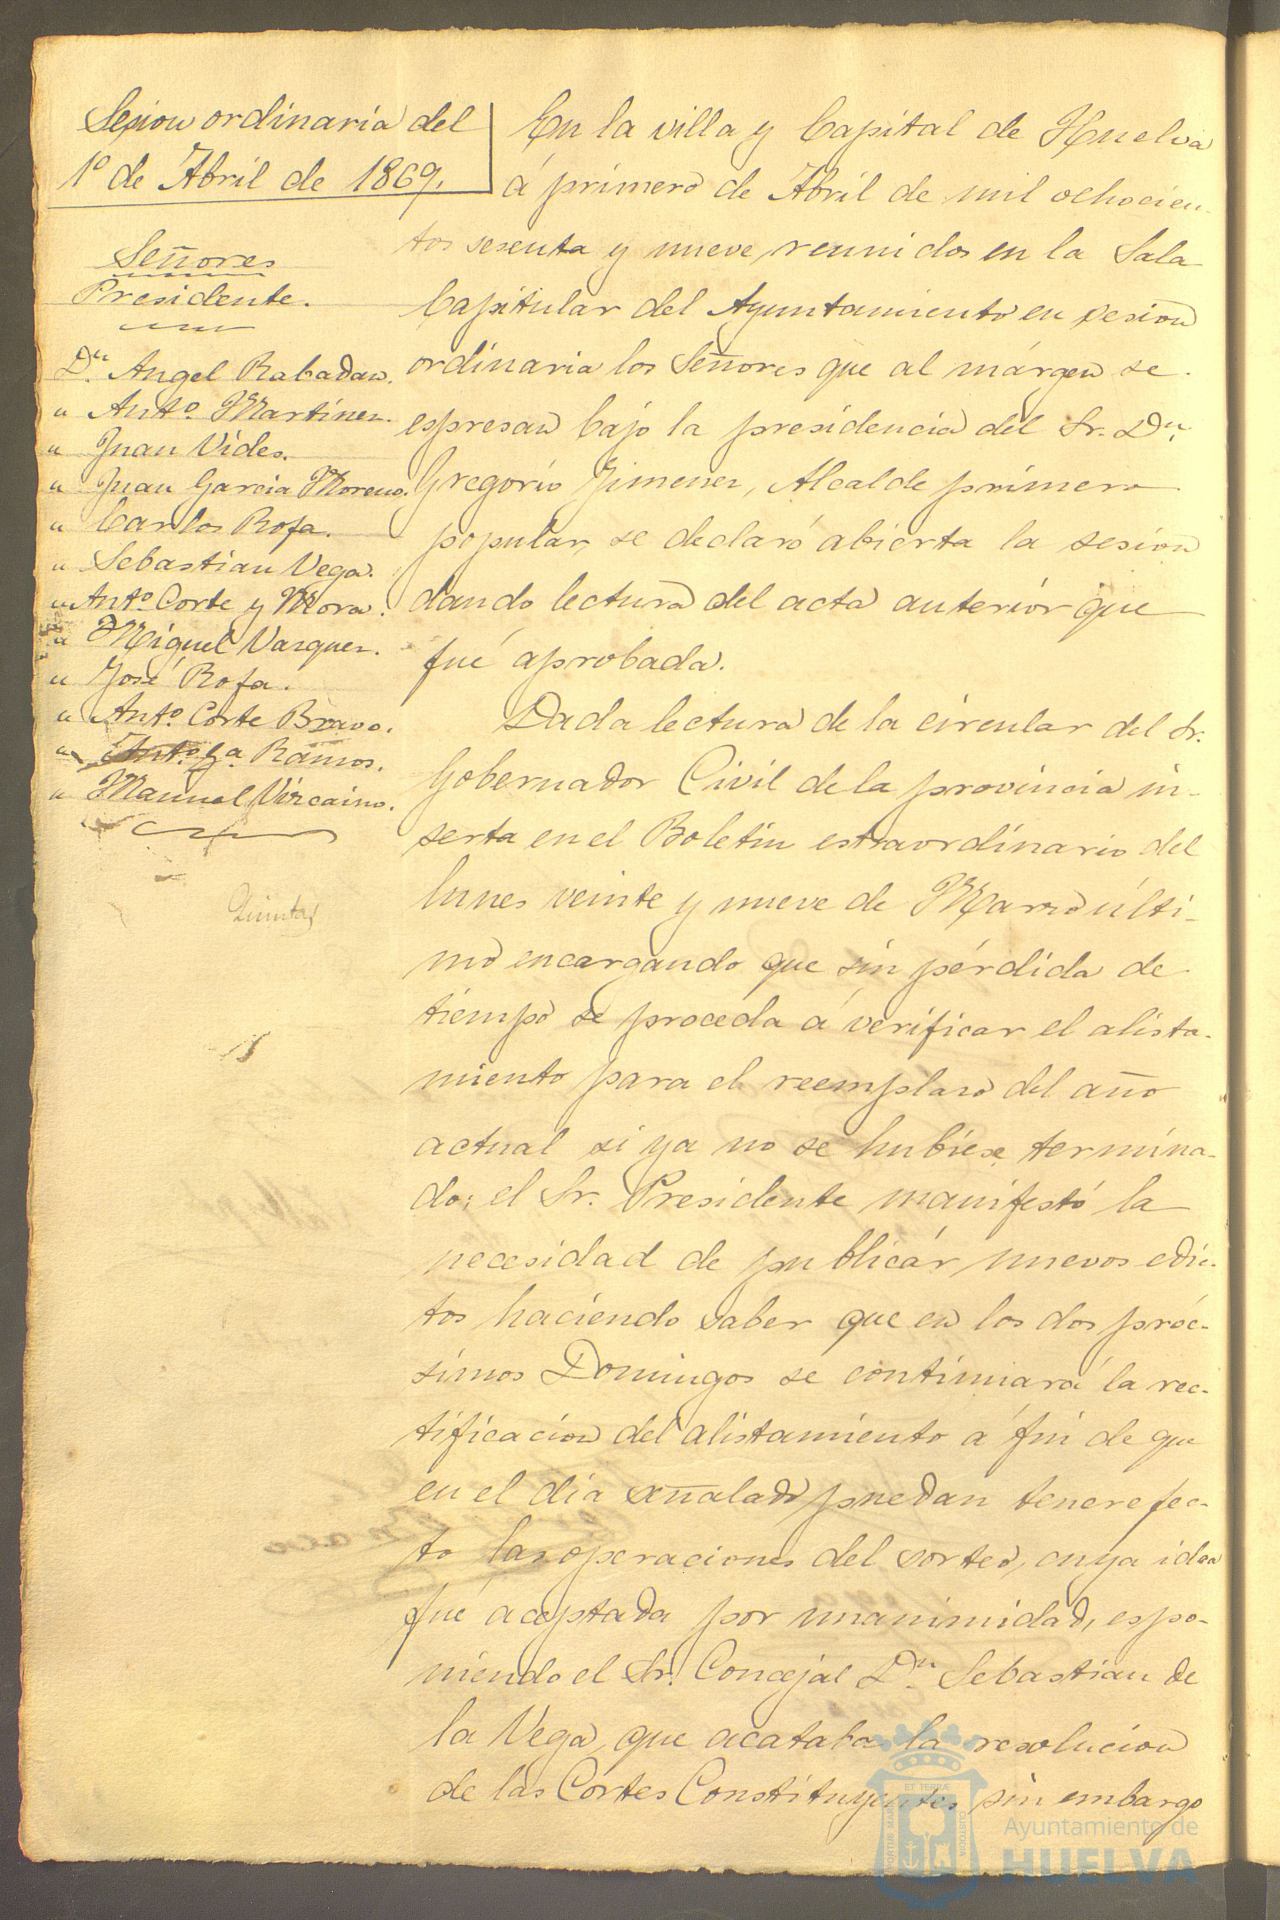 Sesion ordinaria del
1º de Abril de 1869.
Señores
Presidente.
Dn. Angel Rabadan.
" Anto. Martinez.
" Juan Vides.
" Juan Garcia Moreno.
" Carlos Rofa.
" Sebastian Vega.
" Anto. Corte y Mora.
" Miguel Vazquez.
" José Rofa.
" Anto. Corte Bravo.
" Anto. Ga. Ramos.
" Manuel Vizcaino.
Quintas
En la villa y Capital de Huelva
á primero de Abril de mil ochocien-
tos sesenta y nueve, reunidos en la Sala
Capitular del Ayuntamiento en sesion
ordinaria los Señores que al márgen se
espresan bajo la presidencia del Sr. Dn.
Gregorio Jimenez, Alcalde primero
popular, se declaró abierta la sesion
dando lectura del acta anterior que
fué aprobada.
Dada lectura de la circular del Sr.
Gobernador Civil de la provincia in-
serta en el Boletin estraordinario del
lunes veinte y nueve de Marzo últi-
mo encargando que sin pérdida de
tiempo se proceda á verificar el alista-
miento para el reemplazo del año
actual si ya no se hubiese termina-
do; el Sr. Presidente manifestó la
necesidad de publicár nuevos edic-
tos haciendo saber que en los dos proc-
simos Domingos se continuará la rec-
tificacion del alistamiento á fin de que
en el dia señalado puedan tener efec-
to las operaciones del sorteo, cuya idea
fué aceptada por unanimidad, espo-
niendo el Sr. Concejal Dn. Sebastian de
la Vega, que acataba la resolucion
de las Cortes Constituyentes sin embargo
PORTUS MARIS
ET TERRÆ
CUSTODIA
Ayuntamiento de
HUELVA